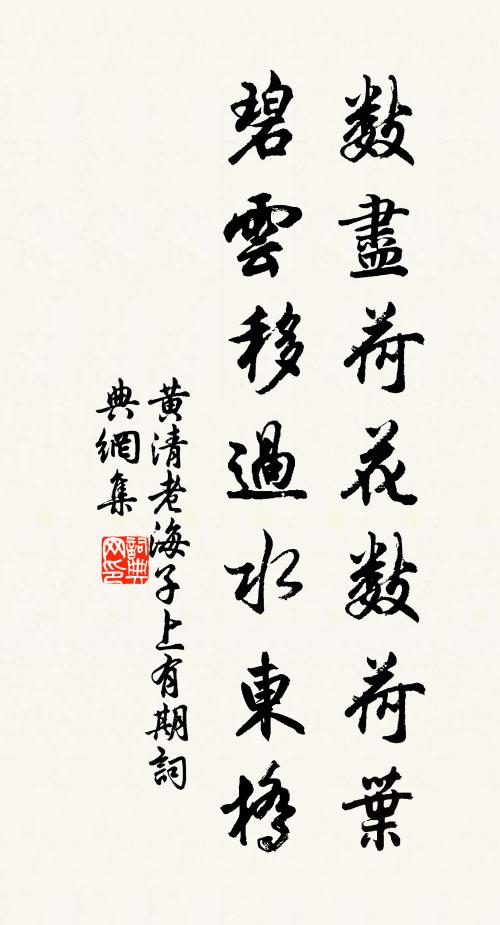 數盡荷花數荷葉
碧雲移過水東橋
黃清老海子上有期詞
典網集
詞典
网印